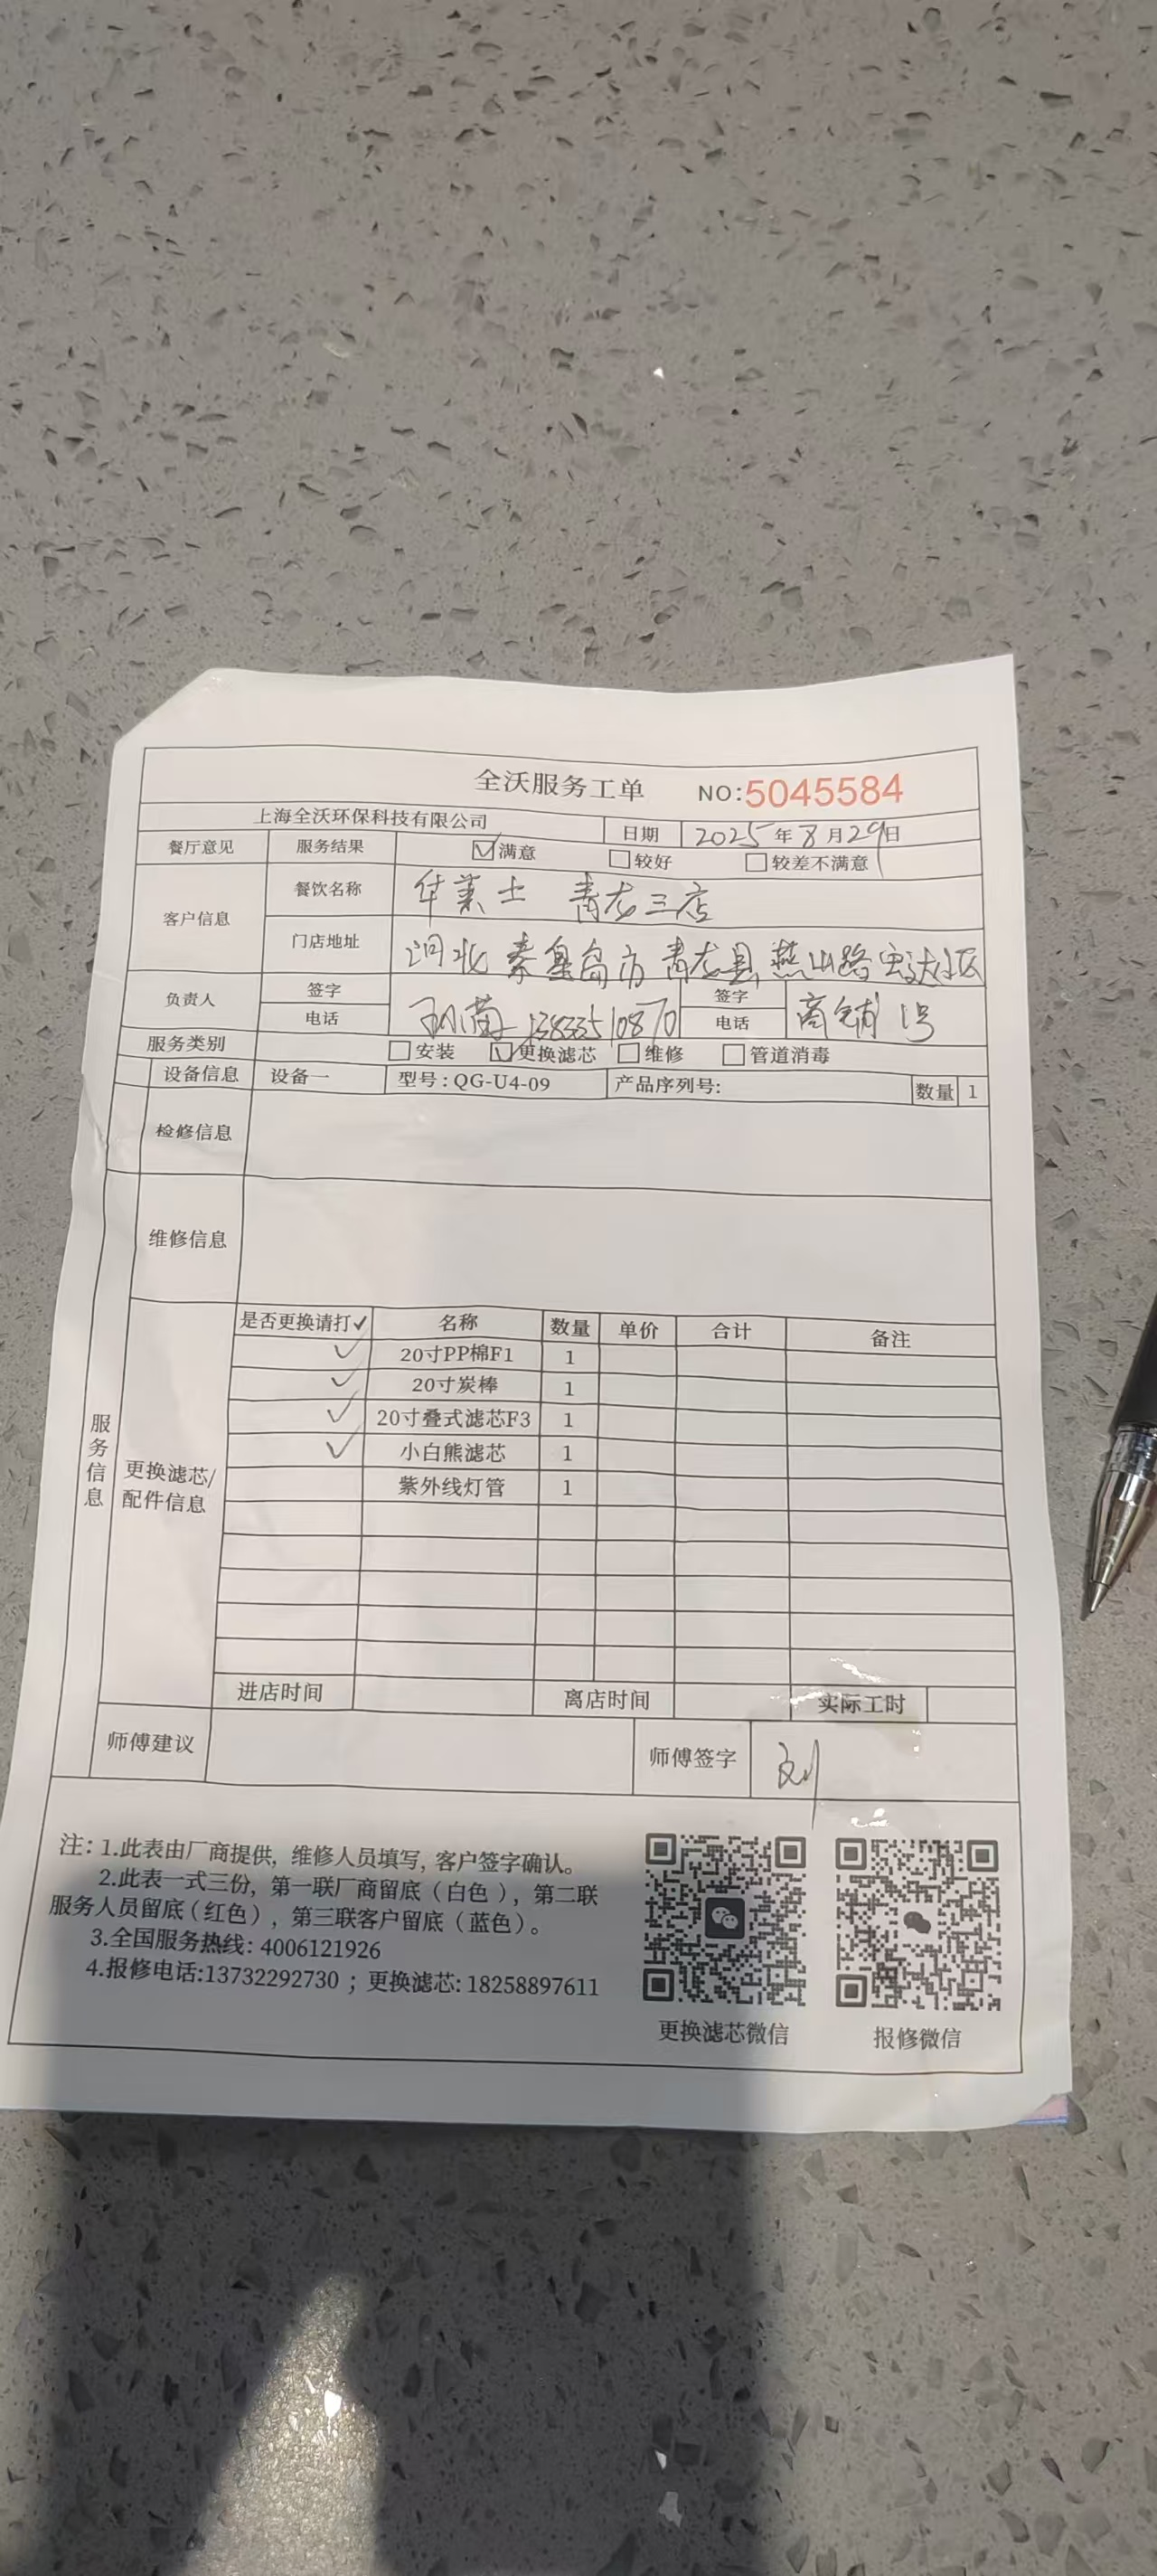 全沃服务工单 NO:5045584
上海全沃环保科技有限公司 日期 2025年8月29日
餐厅意见 服务结果 ☑满意 □较好 □较差不满意
客户信息 餐饮名称 华莱士 青龙三店
门店地址 河北 秦皇岛市 青龙县 燕山路 宏达小区
负责人 签字 电话 孙 签字 电话 商铺 1号
服务类别 □安装 ☑更换滤芯 □维修 □管道消毒
设备信息 设备一 型号:QG-U4-09 产品序列号: 数量 1
检修信息
维修信息
服务信息
更换滤芯/配件信息
是否更换请打✓ 名称 数量 单价 合计 备注
✓ 20寸PP棉F1 1
✓ 20寸炭棒 1
✓ 20寸叠式滤芯F3 1
✓ 小白熊滤芯 1
紫外线灯管 1
进店时间 离店时间 实际工时
师傅建议 师傅签字 刘
注:1.此表由厂商提供,维修人员填写,客户签字确认。
2.此表一式三份,第一联厂商留底(白色),第二联
服务人员留底(红色),第三联客户留底(蓝色)。
3.全国服务热线:4006121926
4.报修电话:13732292730;更换滤芯:18258897611
更换滤芯微信 报修微信